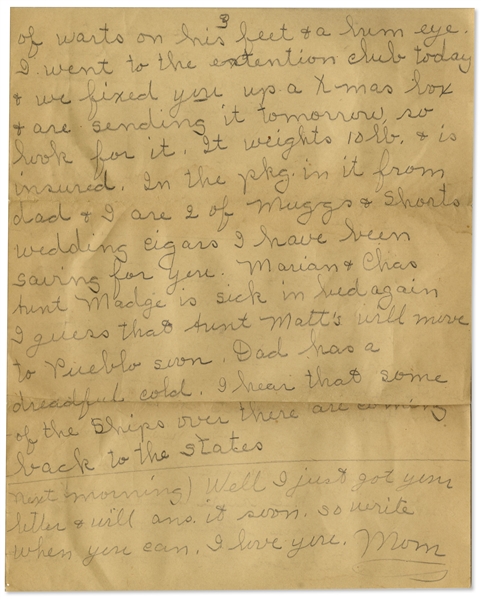 3
of warts on his feet & a bum eye.
I went to the extention club today
& we fixed you up a X-mas box
& are sending it tomorrow, so
look for it. It weights 10 lb. & is
insured. In the pkg. in it from
dad & I are 2 of Muggs & Shorts
wedding cigars I have been
saving for you. Marian & Chas
Aunt Madge is sick in bed again
I guess that Aunt Matt's will move
to Pueblo soon. Dad has a
dreadful cold. I hear that some
of the ships over there are coming
back to the states
next morning) Well I just got your
letter & will ans. it soon. so write
when you can. I love you. Mom